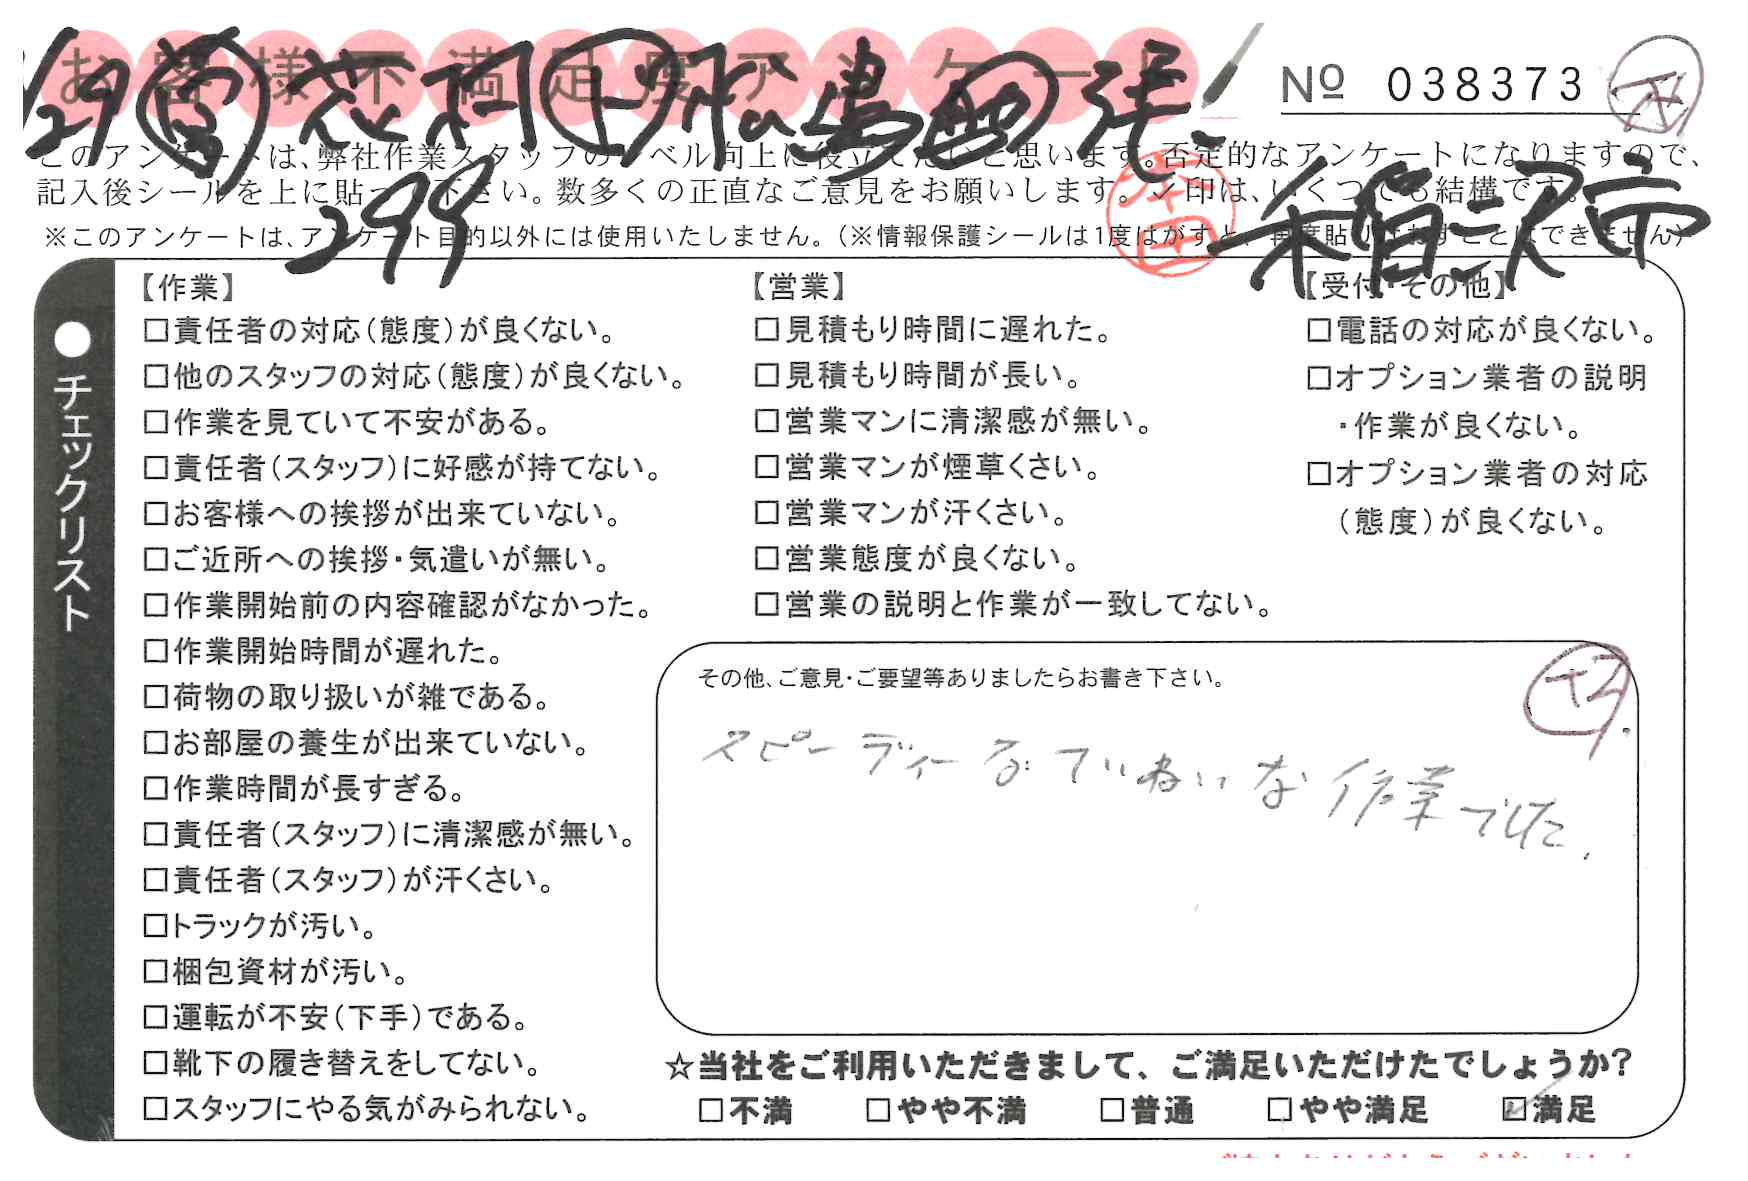 お客様不満足度アンケート
1/29 営 花村 上 松島 西 洋
299
稲沢市
№ 038373
このアンケートは、弊社作業スタッフのレベル向上に役立てたいと思います。否定的なアンケートになりますので、
記入後シールを上に貼って下さい。数多くの正直なご意見をお願いします。レ印は、いくつでも結構です。
※このアンケートは、アンケート目的以外には使用いたしません。(※情報保護シールは1度はがすと、再度貼りなおすことはできません)
本田
●チェックリスト
【作業】
□責任者の対応(態度)が良くない。
□他のスタッフの対応(態度)が良くない。
□作業を見ていて不安がある。
□責任者(スタッフ)に好感が持てない。
□お客様への挨拶が出来ていない。
□ご近所への挨拶・気遣いが無い。
□作業開始前の内容確認がなかった。
□作業開始時間が遅れた。
□荷物の取り扱いが雑である。
□お部屋の養生が出来ていない。
□作業時間が長すぎる。
□責任者(スタッフ)に清潔感が無い。
□責任者(スタッフ)が汗くさい。
□トラックが汚い。
□梱包資材が汚い。
□運転が不安(下手)である。
□靴下の履き替えをしてない。
□スタッフにやる気がみられない。
【営業】
□見積もり時間に遅れた。
□見積もり時間が長い。
□営業マンに清潔感が無い。
□営業マンが煙草くさい。
□営業マンが汗くさい。
□営業態度が良くない。
□営業の説明と作業が一致してない。
【受付・その他】
□電話の対応が良くない。
□オプション業者の説明
・作業が良くない。
□オプション業者の対応
(態度)が良くない。
その他、ご意見・ご要望等ありましたらお書き下さい。
スピーディーなていねいな作業でした.
☆当社をご利用いただきまして、ご満足いただけたでしょうか?
□不満 □やや不満 □普通 □やや満足 ☑満足